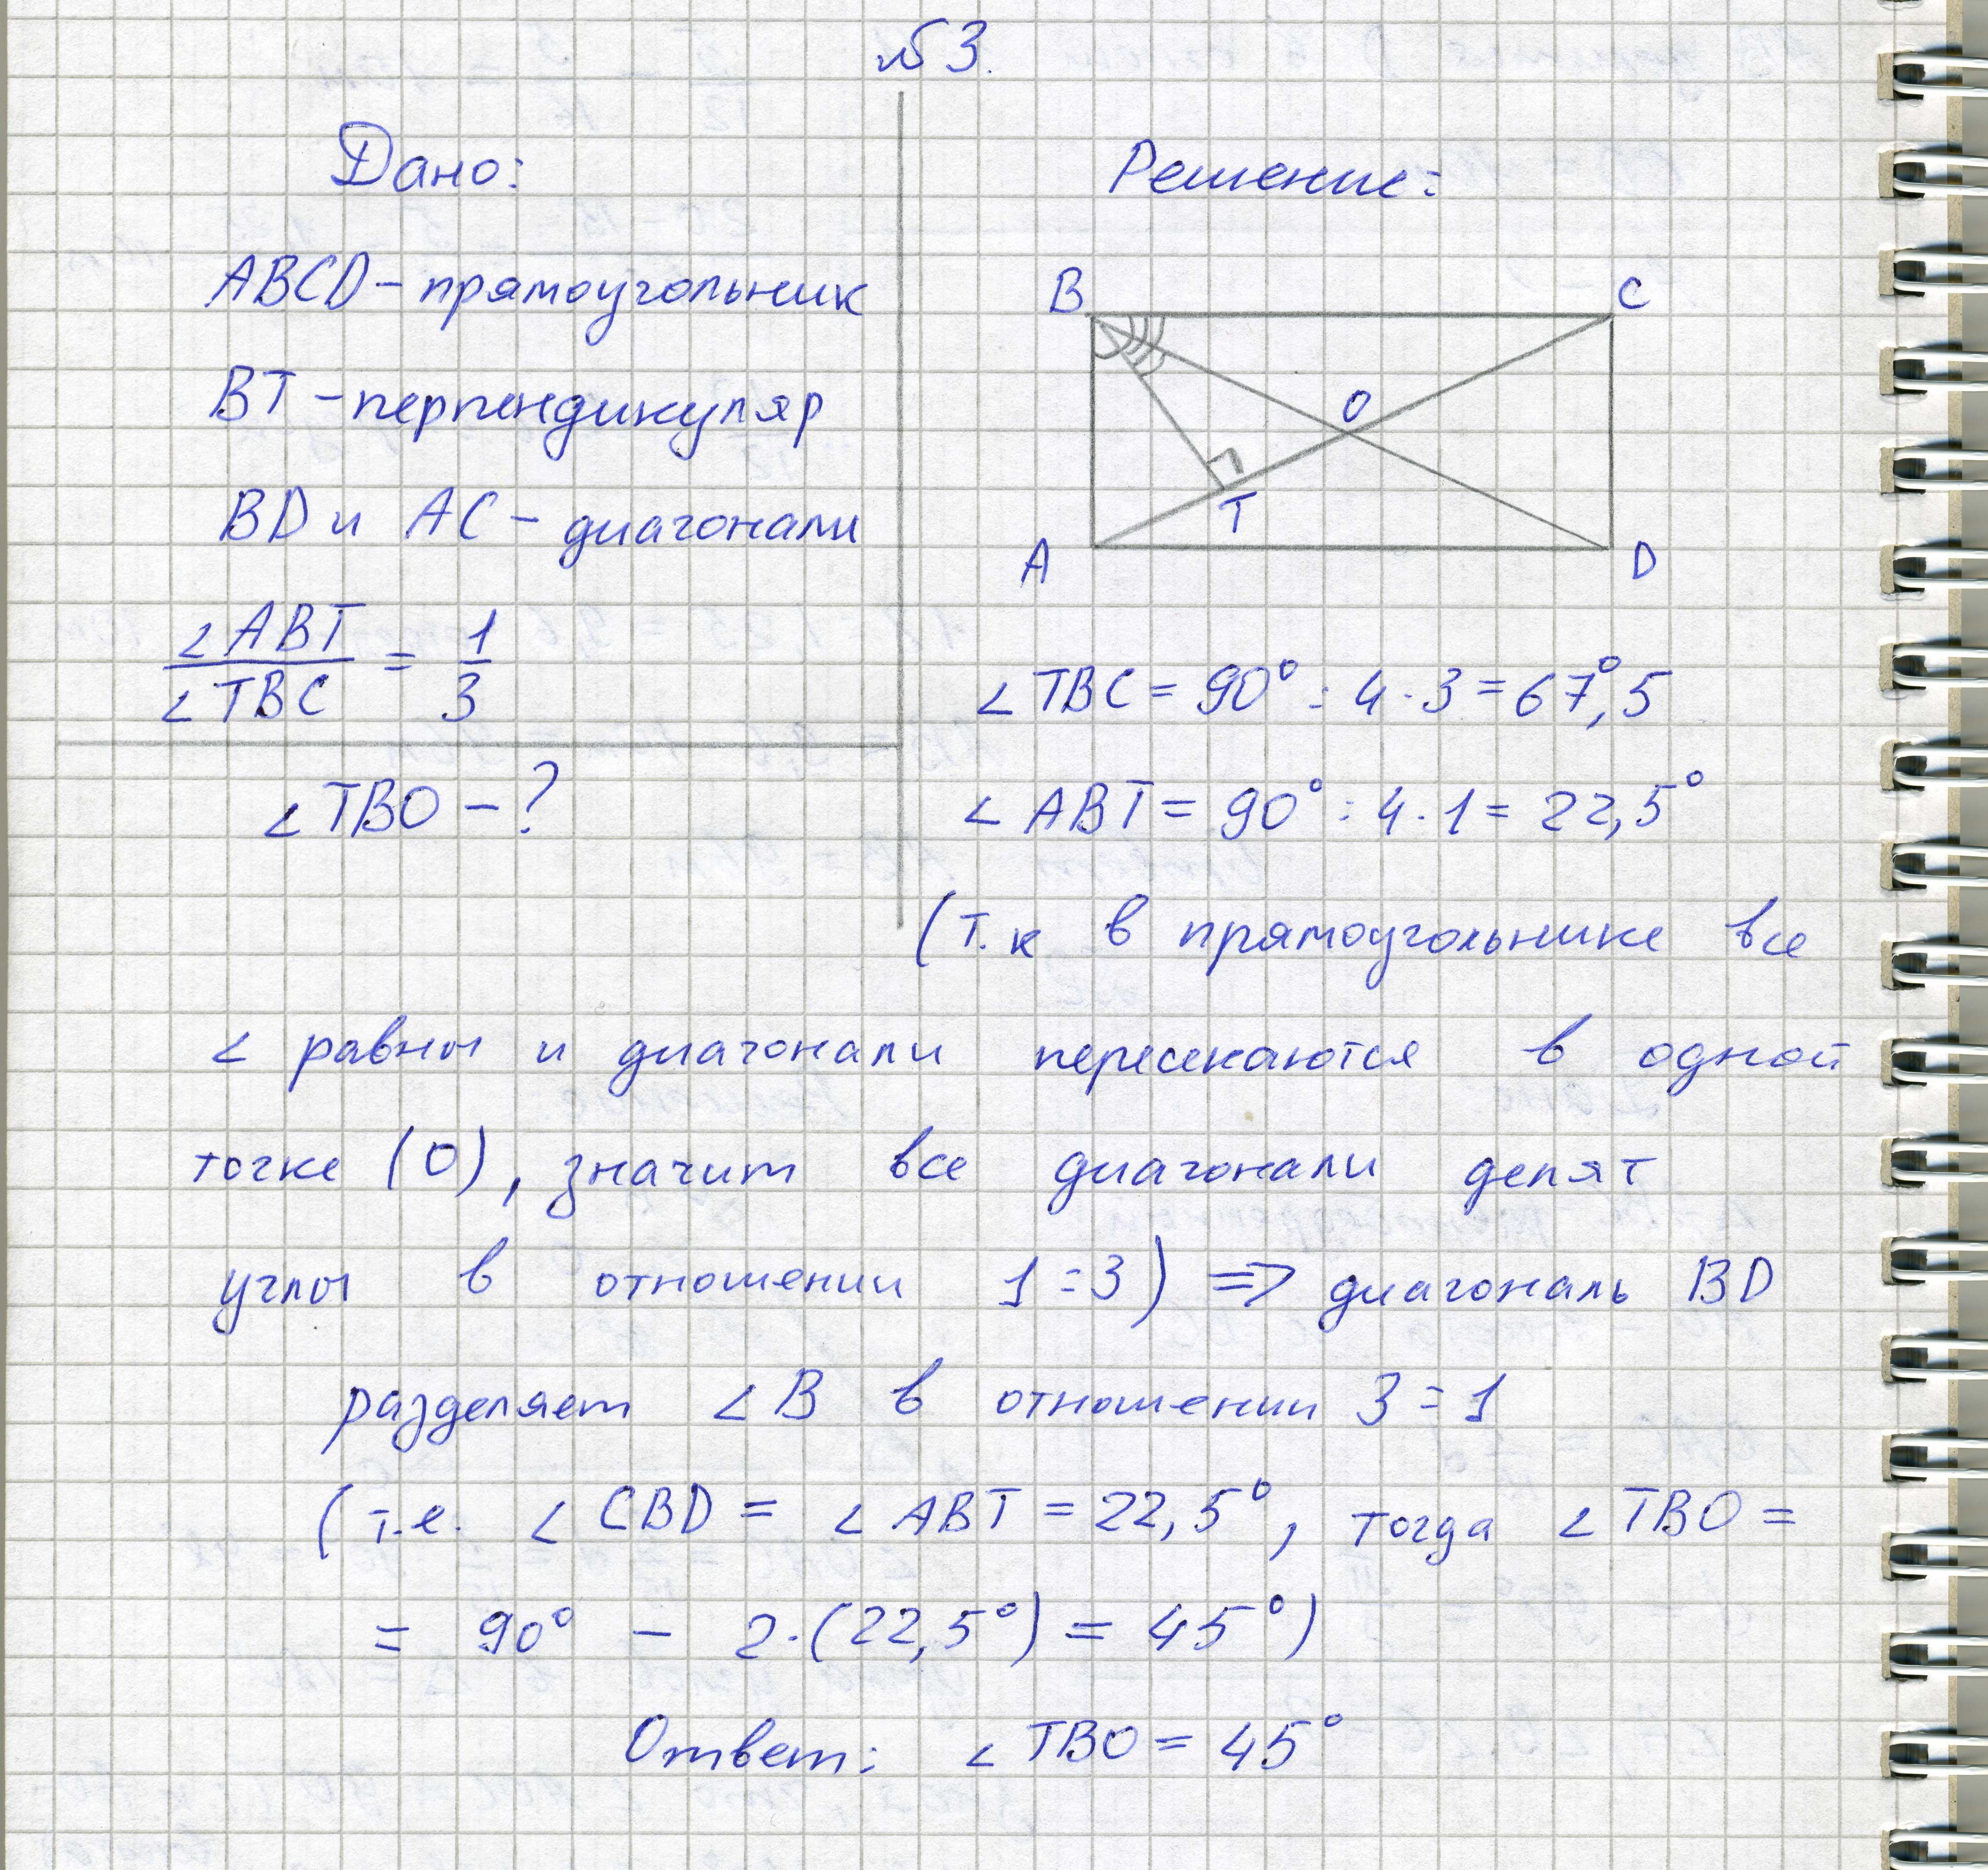 №3.
Дано:
ABCD – прямоугольник
BT – перпендикуляр
BD и AC – диагонали
∠ABT / ∠TBC = 1/3
∠TBO – ?
Решение:
B
C
O
T
A
D
∠TBC = 90° : 4 · 3 = 67°,5
∠ABT = 90° : 4 · 1 = 22,5°
(т.к в прямоугольнике все
∠ равны и диагонали пересекаются в одной
точке (O), значит все диагонали делят
углы в отношении 1:3) => диагональ BD
разделяет ∠B в отношении 3:1
(т.е. ∠CBD = ∠ABT = 22,5°, тогда ∠TBO =
= 90° – 2·(22,5°) = 45°)
Ответ: ∠TBO = 45°